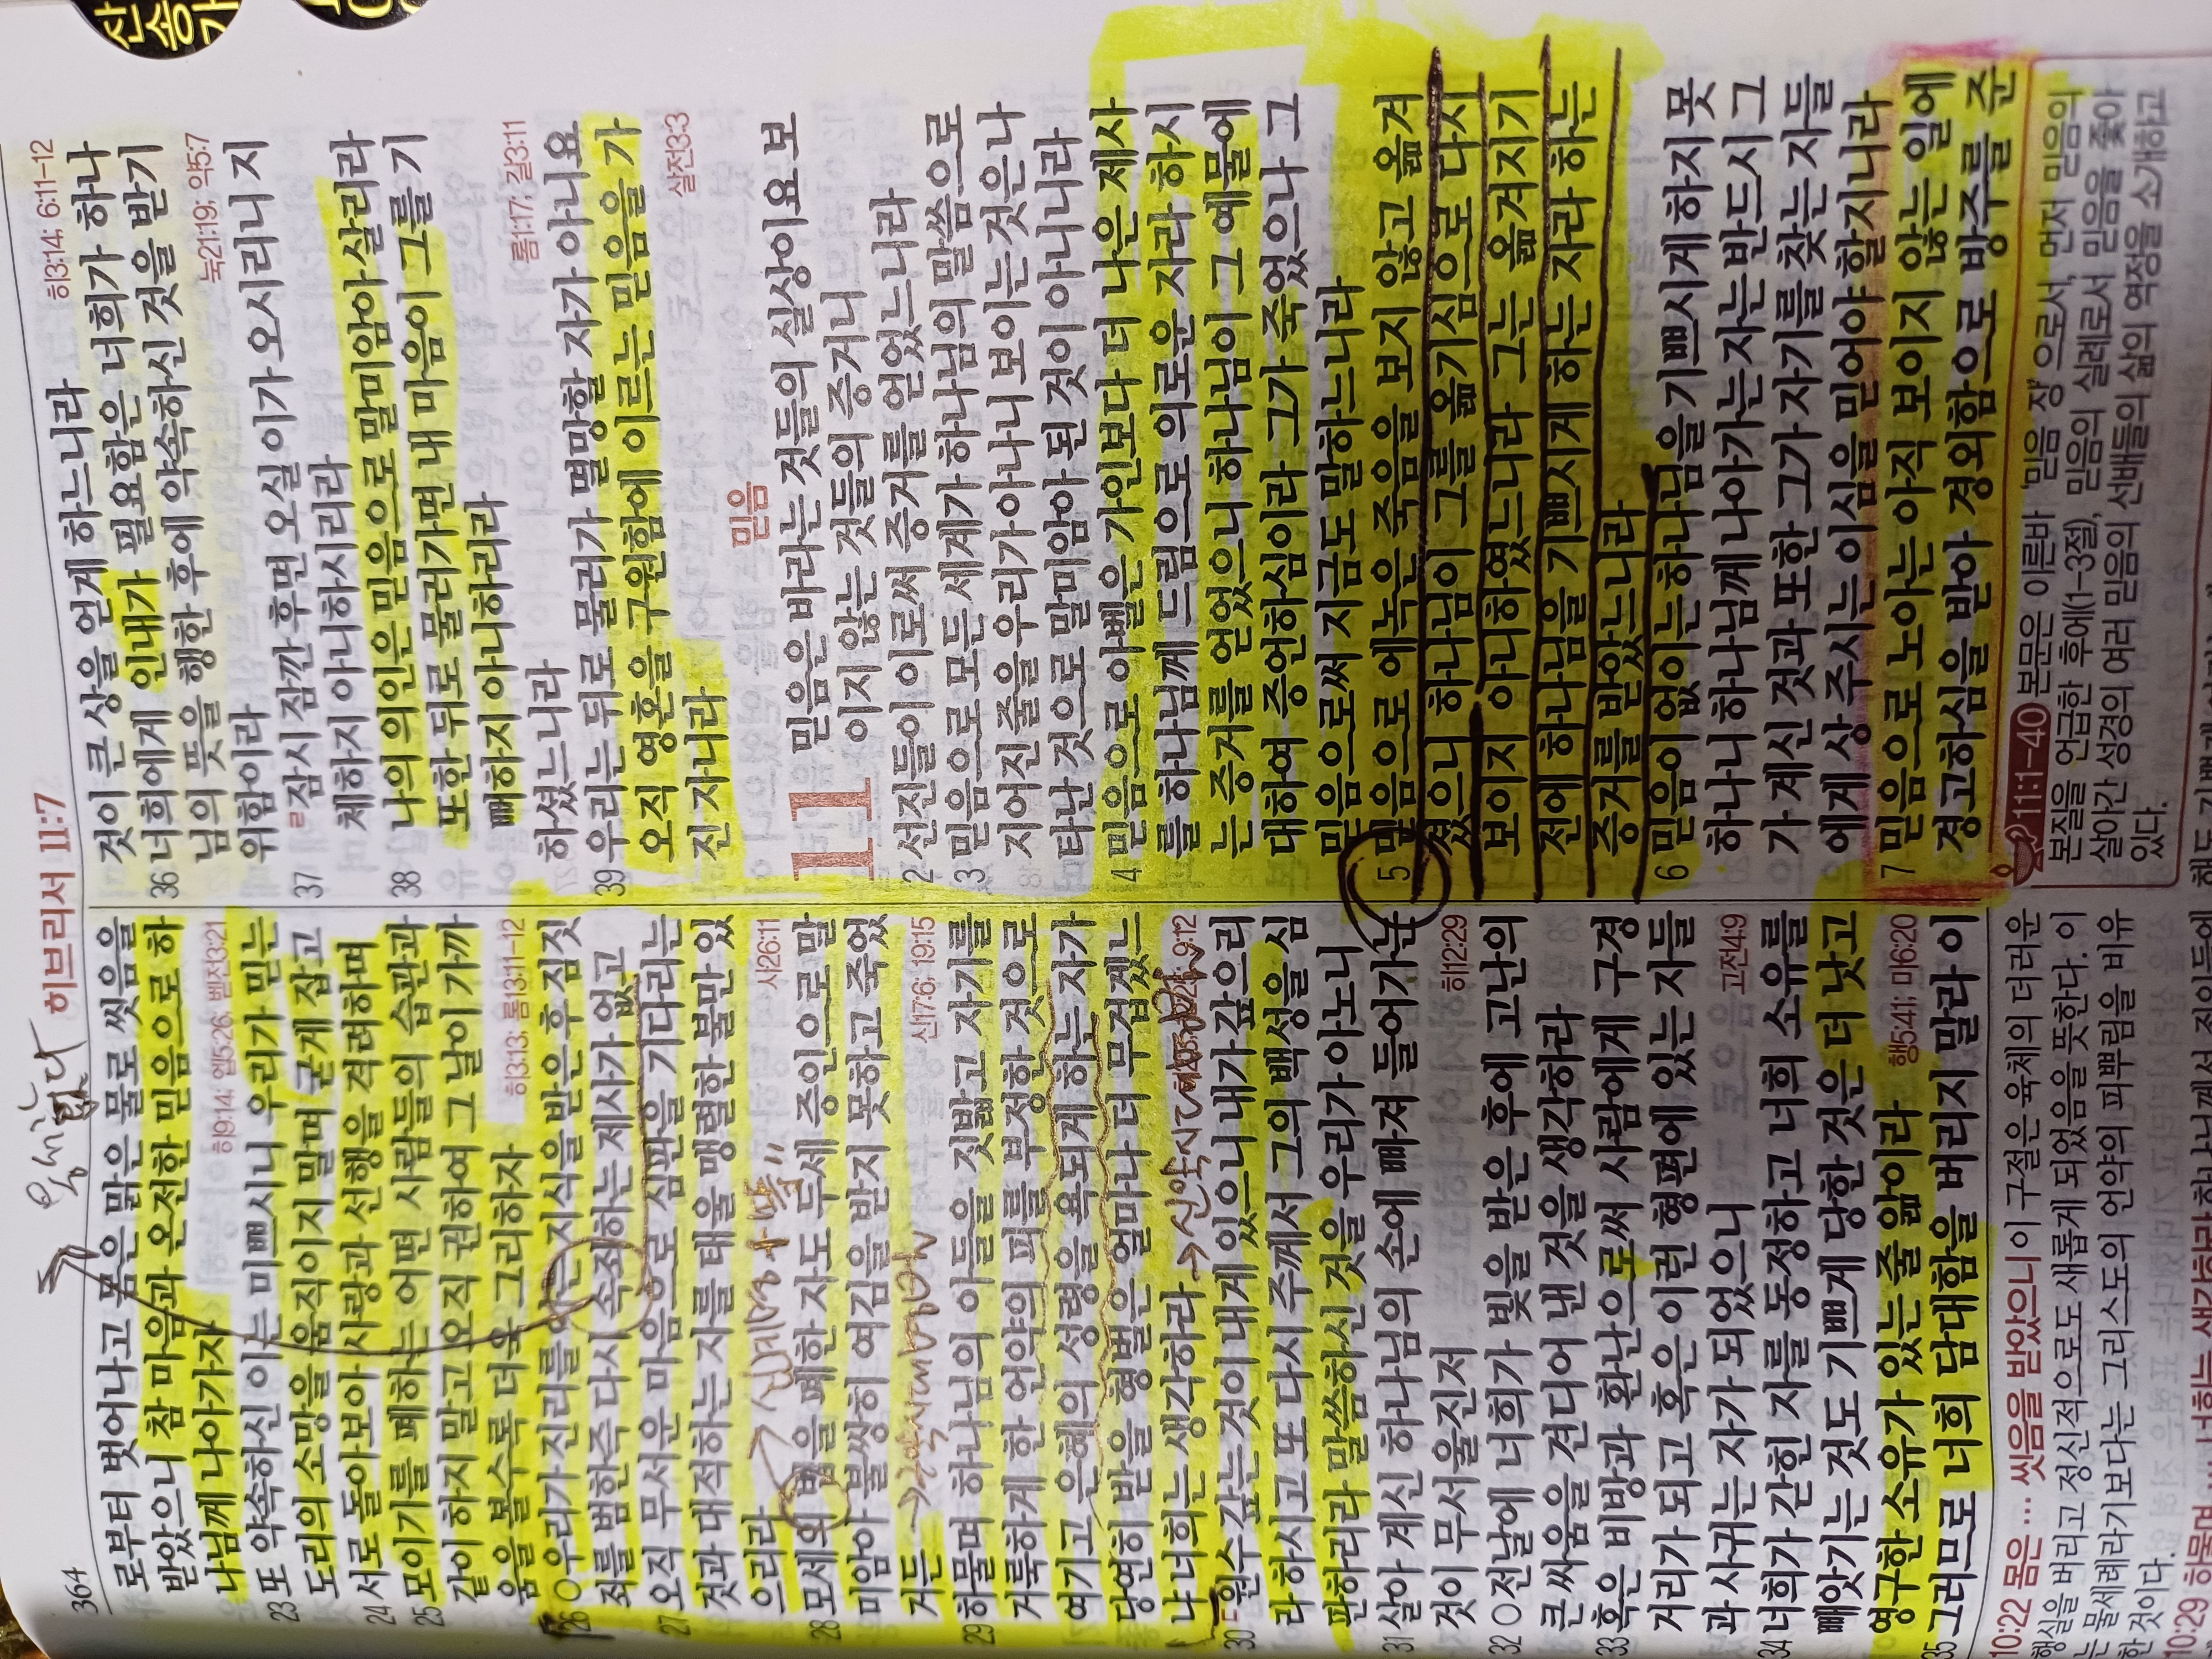 364
히브리서 11:7
로부터 벗어나고 몸은 맑은 물로 씻음을
받았으니 참 마음과 온전한 믿음으로 하
나님께 나아가자
히9:14; 엡5:26; 벧전3:21
23 또 약속하신 이는 미쁘시니 우리가 믿는
도리의 소망을 움직이지 말며 굳게 잡고
24 서로 돌아보아 사랑과 선행을 격려하며
25 모이기를 폐하는 어떤 사람들의 습관과
같이 하지 말고 오직 권하여 그 날이 가까
움을 볼수록 더욱 그리하자
히3:13; 롬13:11-12
26 ○우리가 진리를 아는 지식을 받은 후 짐짓
죄를 범한즉 다시 속죄하는 제사가 없고
27 오직 무서운 마음으로 심판을 기다리는
것과 대적하는 자를 태울 맹렬한 불만 있
으리라
사26:11
28 모세의 법을 폐한 자도 두세 증인으로 말
미암아 불쌍히 여김을 받지 못하고 죽었
거든
신17:6; 19:15
29 하물며 하나님의 아들을 짓밟고 자기를
거룩하게 한 언약의 피를 부정한 것으로
여기고 은혜의 성령을 욕되게 하는 자가
당연히 받을 형벌은 얼마나 더 무겁겠느
냐 너희는 생각하라
→신약시대
9:12
30 ㄷ원수 갚는 것이 내게 있으니 내가 갚으리
라 하시고 또 다시 주께서 그의 백성을 심
판하리라 말씀하신 것을 우리가 아노니
31 살아 계신 하나님의 손에 빠져 들어가는
것이 무서울진저
히12:29
32 ○전날에 너희가 빛을 받은 후에 고난의
큰 싸움을 견디어 낸 것을 생각하라
33 혹은 비방과 환난으로써 사람에게 구경
거리가 되고 혹은 이런 형편에 있는 자들
과 사귀는 자가 되었으니
고전4:9
34 너희가 갇힌 자를 동정하고 너희 소유를
빼앗기는 것도 기쁘게 당한 것은 더 낫고
영구한 소유가 있는 줄 앎이라
행5:41; 마6:20
35 그러므로 너희 담대함을 버리지 말라 이
10:22 몸은 … 씻음을 받았으니 이 구절은 육체의 더러운
행실을 버리고 정신적으로도 새롭게 되었음을 뜻한다. 이
는 물세례라기보다는 그리스도의 언약의 피뿌림을 비유
한 것이다.
10:29 하물며
것이 큰 상을 얻게 하느니라
36 너희에게 인내가 필요함은 너희가 하나
님의 뜻을 행한 후에 약속하신 것을 받기
위함이라
히3:14; 6:11-12
눅21:19; 약5:7
37 ㄹ잠시 잠깐 후면 오실 이가 오시리니 지
체하지 아니하시리라
38 나의 의인은 믿음으로 말미암아 살리라
또한 뒤로 물러가면 내 마음이 그를 기
뻐하지 아니하리라
하셨느니라
롬1:17; 갈3:11
39 우리는 뒤로 물러가 멸망할 자가 아니요
오직 영혼을 구원함에 이르는 믿음을 가
진 자니라
살전3:3
믿음
11 믿음은 바라는 것들의 실상이요 보
이지 않는 것들의 증거니
2 선진들이 이로써 증거를 얻었느니라
3 믿음으로 모든 세계가 하나님의 말씀으로
지어진 줄을 우리가 아나니 보이는 것은 나
타난 것으로 말미암아 된 것이 아니니라
4 믿음으로 아벨은 가인보다 더 나은 제사
를 하나님께 드림으로 의로운 자라 하시
는 증거를 얻었으니 하나님이 그 예물에
대하여 증언하심이라 그가 죽었으나 그
믿음으로써 지금도 말하느니라
5 믿음으로 에녹은 죽음을 보지 않고 옮겨
졌으니 하나님이 그를 옮기심으로 다시
보이지 아니하였느니라 그는 옮겨지기
전에 하나님을 기쁘시게 하는 자라 하는
증거를 받았느니라
6 믿음이 없이는 하나님을 기쁘시게 하지 못
하나니 하나님께 나아가는 자는 반드시 그
가 계신 것과 또한 그가 자기를 찾는 자들
에게 상 주시는 이심을 믿어야 할지니라
7 믿음으로 노아는 아직 보이지 않는 일에
경고하심을 받아 경외함으로 방주를 준
11:1-40 본문은 이른바 '믿음 장'으로서, 먼저 믿음의
본질을 언급한 후에(1-3절), 믿음의 실례로서 믿음을 좇아
살아간 성경의 여러 믿음의 선배들의 삶의 역정을 소개하고
있다.